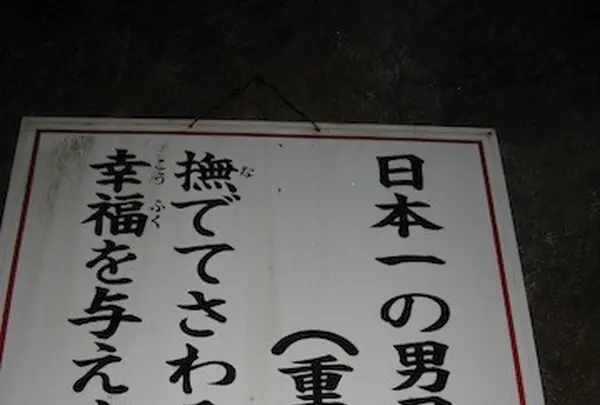 日本一の男
（重
撫でてさわ
な
幸福を与え
こうふく